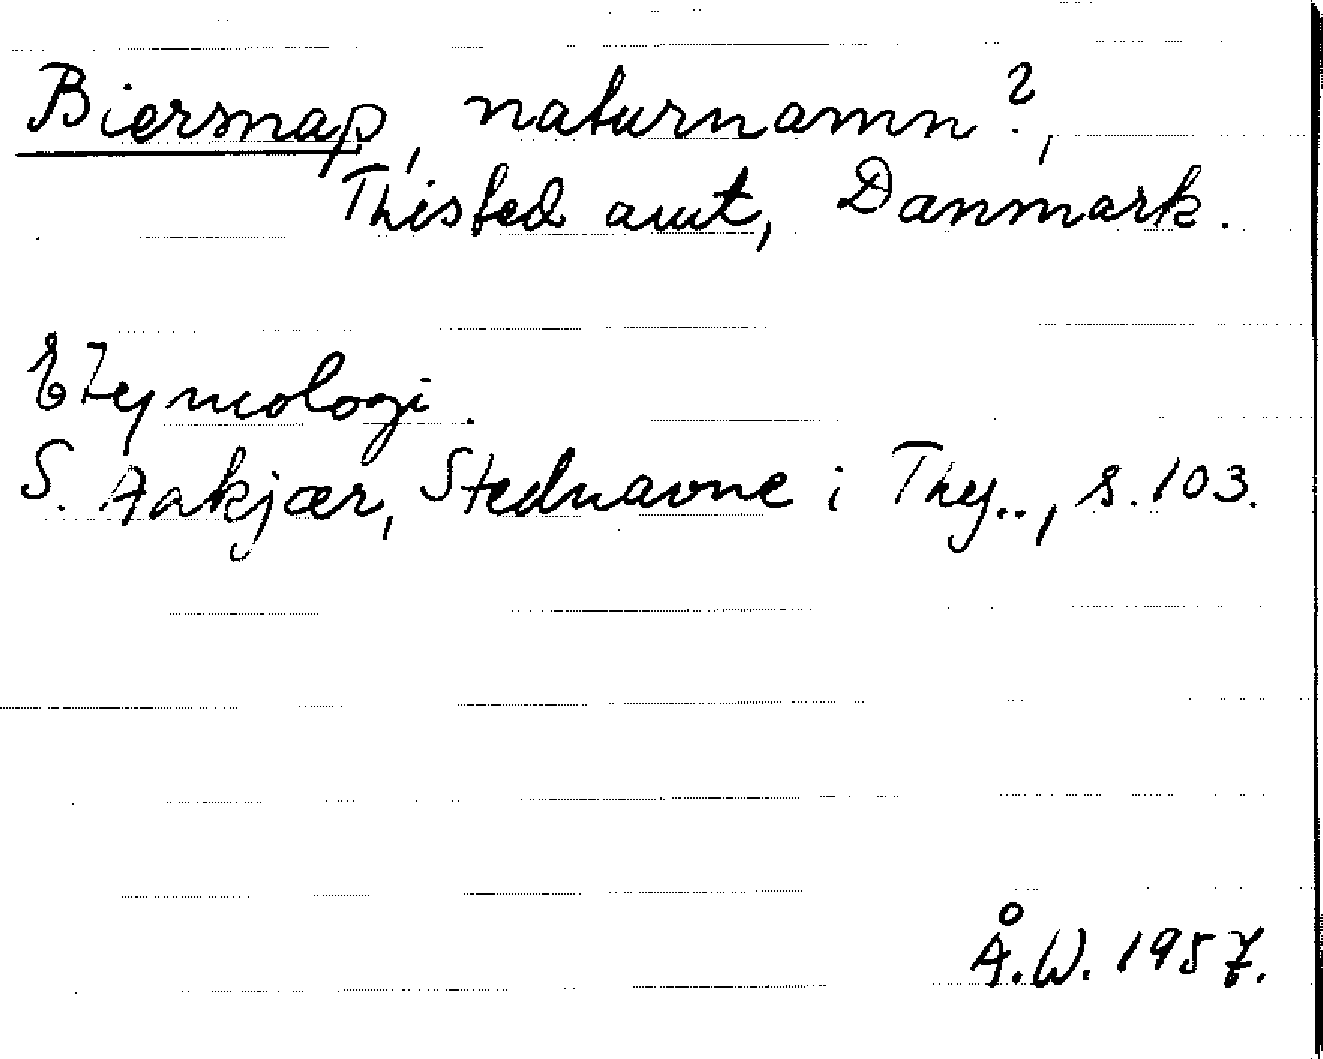 Biersnap, naturnamn?,
Thisted amt, Danmark.
Etymologi.
S. Aakjær, Stednavne i Thy.., s. 103.
Å.W. 1957.